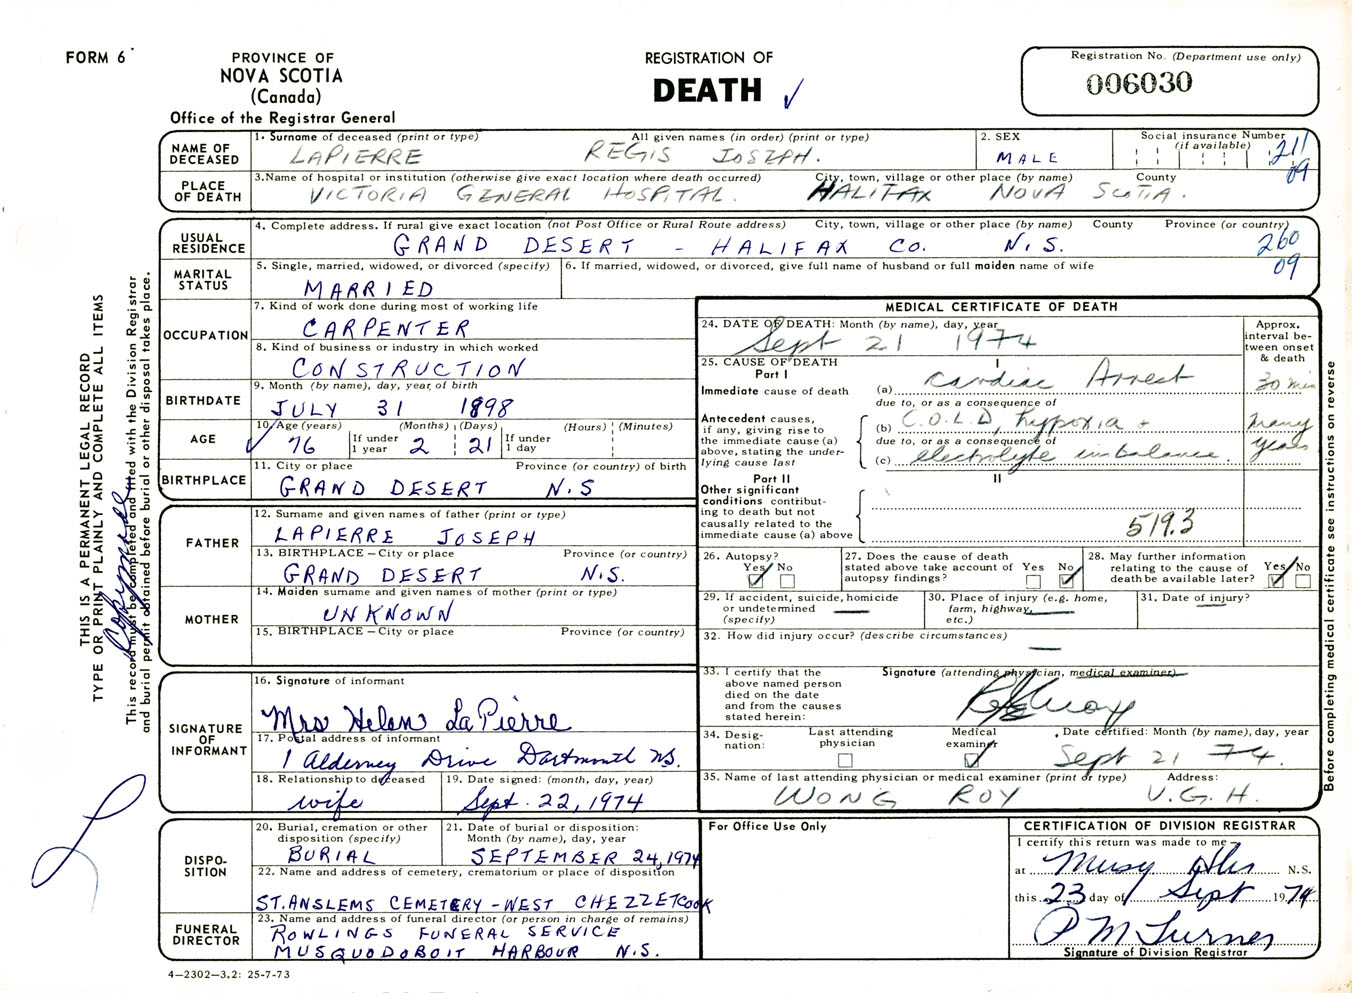 FORM 6
PROVINCE OF
NOVA SCOTIA
(Canada)
Office of the Registrar General
REGISTRATION OF
DEATH ✓
Registration No. (Department use only)
006030
NAME OF DECEASED
1. Surname of deceased (print or type) All given names (in order) (print or type)
LAPIERRE REGIS JOSEPH.
2. SEX
MALE
Social insurance Number (if available)
211
09
PLACE OF DEATH
3. Name of hospital or institution (otherwise give exact location where death occurred) City, town, village or other place (by name) County
VICTORIA GENERAL HOSPITAL. HALIFAX NOVA SCOTIA.
USUAL RESIDENCE
4. Complete address. If rural give exact location (not Post Office or Rural Route address) City, town, village or other place (by name) County Province (or country)
GRAND DESERT - HALIFAX CO. N.S.
260
09
MARITAL STATUS
5. Single, married, widowed, or divorced (specify)
MARRIED
6. If married, widowed, or divorced, give full name of husband or full maiden name of wife
OCCUPATION
7. Kind of work done during most of working life
CARPENTER
8. Kind of business or industry in which worked
CONSTRUCTION
BIRTHDATE
9. Month (by name), day, year, of birth
JULY 31 1898
AGE
10. Age (years) (Months) (Days) (Hours) (Minutes)
✓ 76 If under 1 year 2 21 If under 1 day
BIRTHPLACE
11. City or place Province (or country) of birth
GRAND DESERT N.S
FATHER
12. Surname and given names of father (print or type)
LAPIERRE JOSEPH
13. BIRTHPLACE — City or place Province (or country)
GRAND DESERT N.S.
MOTHER
14. Maiden surname and given names of mother (print or type)
UNKNOWN
15. BIRTHPLACE — City or place Province (or country)
SIGNATURE OF INFORMANT
16. Signature of informant
Mrs Helen LaPierre
17. Postal address of informant
1 Alderney Drive Dartmouth N.S.
18. Relationship to deceased
wife
19. Date signed: (month, day, year)
Sept. 22, 1974
DISPO-
SITION
20. Burial, cremation or other disposition (specify)
BURIAL
21. Date of burial or disposition: Month (by name), day, year
SEPTEMBER 24, 1974
22. Name and address of cemetery, crematorium or place of disposition
ST. ANSLEMS CEMETERY - WEST CHEZZETCOOK
FUNERAL DIRECTOR
23. Name and address of funeral director (or person in charge of remains)
ROWLINGS FUNERAL SERVICE
MUSQUODOBOIT HARBOUR N.S.
4—2302—3.2: 25-7-73
MEDICAL CERTIFICATE OF DEATH
24. DATE OF DEATH: Month (by name), day, year
Sept 21 1974
Approx. interval be-
tween onset
& death
25. CAUSE OF DEATH
Part I
I
Immediate cause of death
(a) Cardiac Arrest
30 min
due to, or as a consequence of
Antecedent causes,
if any, giving rise to
the immediate cause (a)
above, stating the under-
lying cause last
(b) C.O.L.D, hypoxia +
many
due to, or as a consequence of
years
(c) electrolyte imbalance.
Part II
II
Other significant
conditions contribut-
ing to death but not
causally related to the
immediate cause (a) above
519.3
26. Autopsy?
Yes ✓ No
27. Does the cause of death stated above take account of autopsy findings?
Yes No ✓
28. May further information relating to the cause of death be available later?
Yes ✓ No
29. If accident, suicide, homicide or undetermined (specify) —
30. Place of injury (e.g. home, farm, highway, etc.) —
31. Date of injury? —
32. How did injury occur? (describe circumstances) —
33. I certify that the
above named person
died on the date
and from the causes
stated herein:
Signature (attending physician, medical examiner)
34. Desig-
nation:
Last attending physician
Medical examiner ✓
Date certified: Month (by name), day, year
Sept 21 74.
35. Name of last attending physician or medical examiner (print or type) Address:
WONG ROY V.G.H.
For Office Use Only
CERTIFICATION OF DIVISION REGISTRAR
I certify this return was made to me
at N.S.
this 23 day of Sept 1974
P M Turner
Signature of Division Registrar
THIS IS A PERMANENT LEGAL RECORD
TYPE OR PRINT PLAINLY AND COMPLETE ALL ITEMS
This record must be completed and filed with the Division Registrar
and burial permit obtained before burial or other disposal takes place.
Before completing medical certificate see instructions on reverse